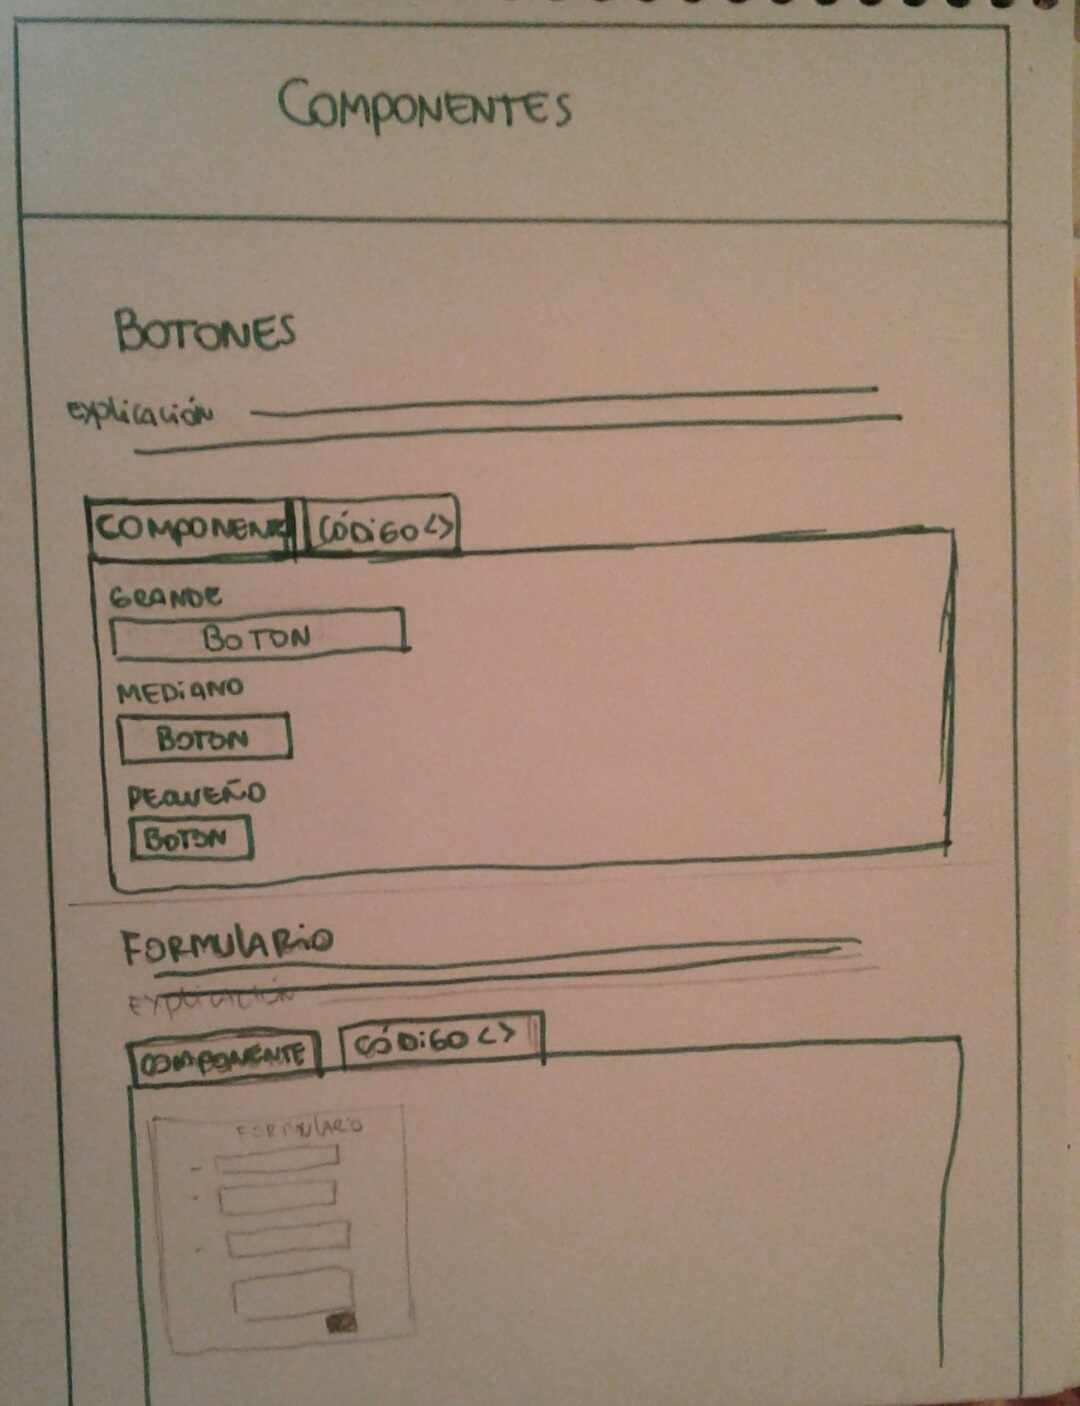 COMPONENTES
BOTONES
explicación
COMPONENT CÓDiGO <>
GRANDE
BOTON
MEDiANO
BOTON
PEQUEÑO
BOTON
FORMULARiO
EXPLICACIÓN
COMPONENTE CÓDiGO <>
FORMULARIO